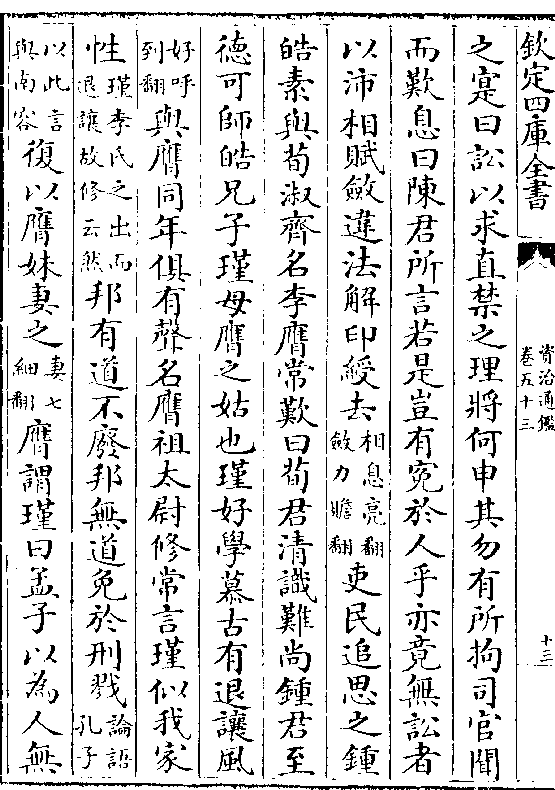 欽定四庫全書
資治通鑑
卷五十三
十三
之寔曰訟以求直禁之理將何申其勿有所拘司官聞
而歎息曰陳君所言若是豈有寃於人乎亦竟無訟者
以沛相賦斂違法解印綬去相息亮翻斂力贍翻吏民追思之鍾
皓素與荀淑齊名李膺常歎曰荀君清識難尚鍾君至
德可師皓兄子瑾母膺之姑也瑾好學慕古有退讓風
好呼到翻與膺同年俱有聲名膺祖太尉修常言瑾似我家
性瑾李氏之出而退讓故修云然邦有道不廢邦無道免於刑戮論語孔子
以此言與南容復以膺妹妻之妻七細翻膺謂瑾曰孟子以為人無